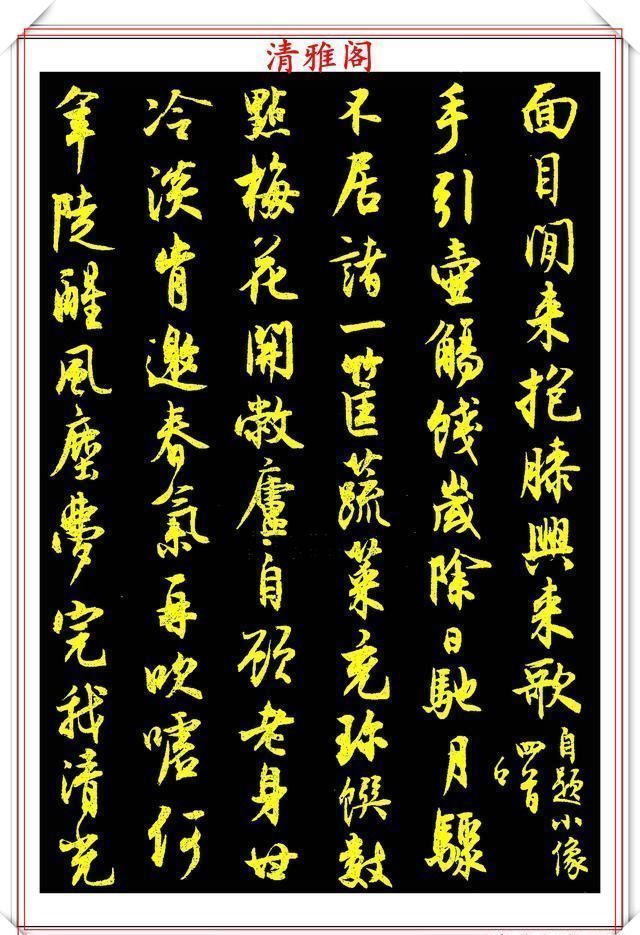 清雅阁
面目閒来抱膝興来歌自題小像四首
手引壶觴餞歲除日馳月驟
不居諸一筐蔬菜充珎饌数
點梅花開敝廬自顧老身世
冷淡肯邀春氣再吹噓何
年陡醒風塵夢完我清光